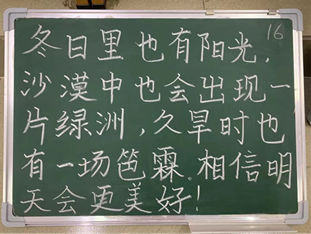 16
冬日里也有阳光，
沙漠中也会出现一
片绿洲，久旱时也
有一场笆霖。相信明
天会更美好！